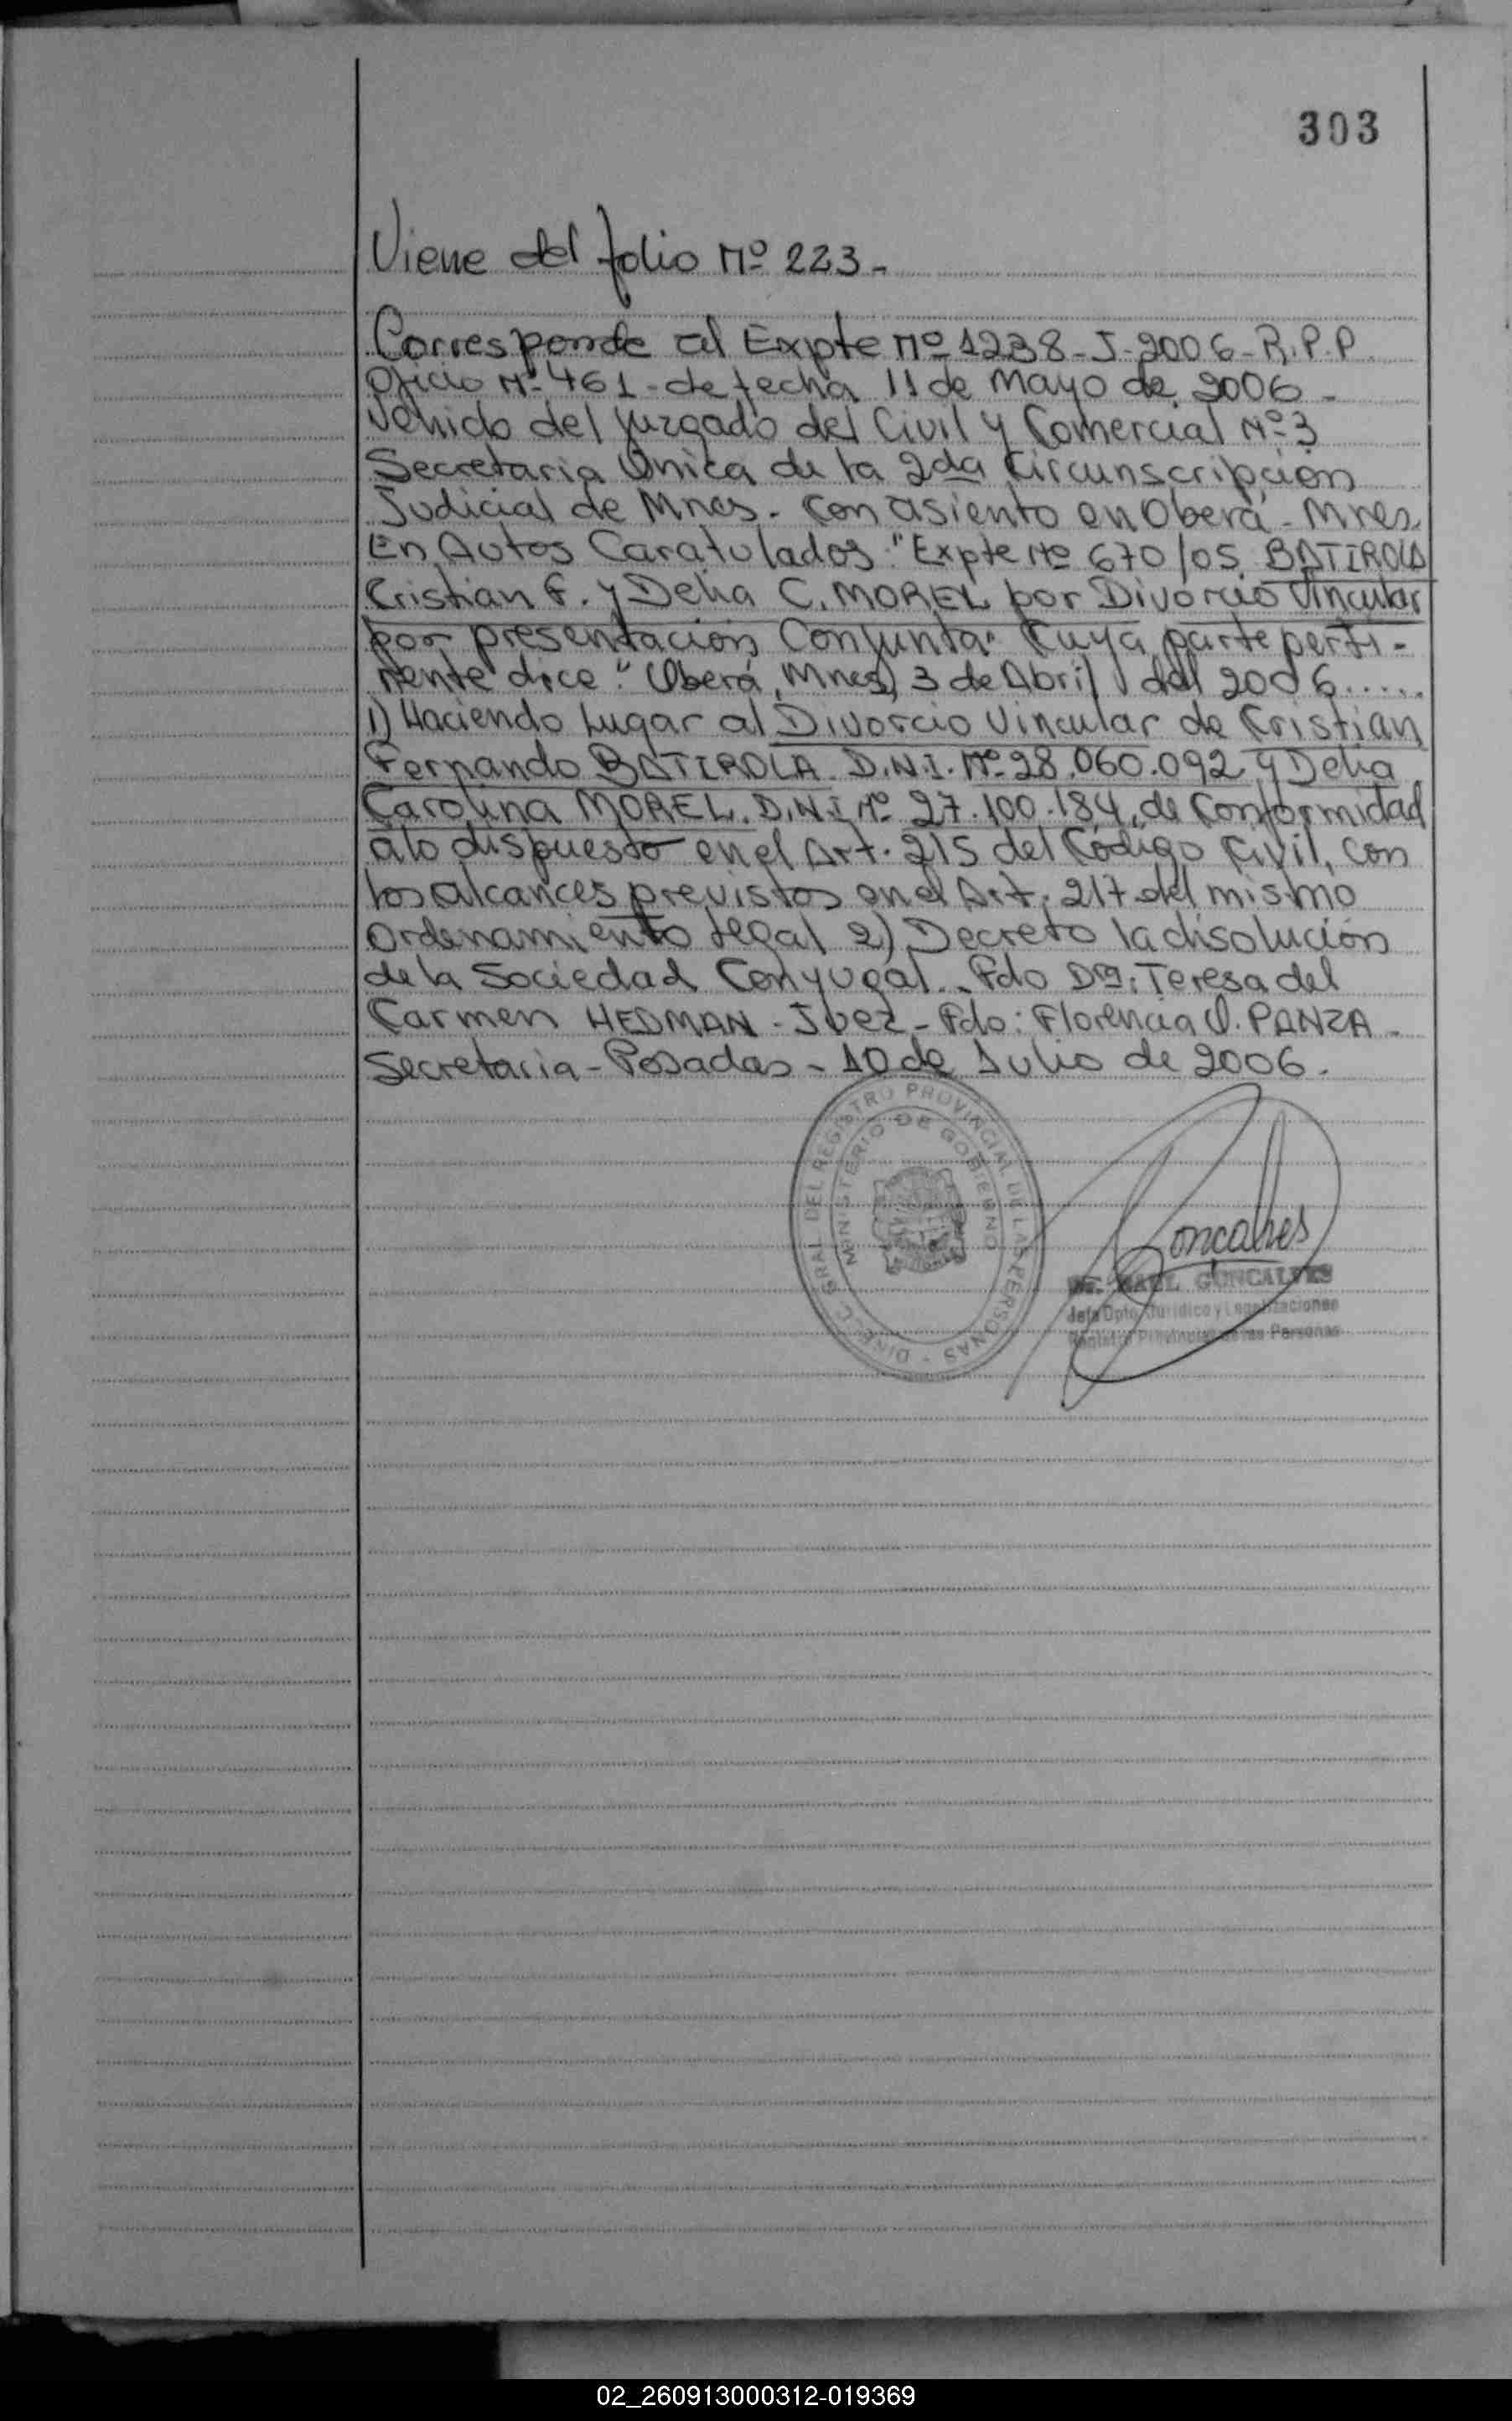 303
Viene del folio Nº 223.-
Corresponde al Expte Nº 1238-J-2006-R.P.P.
Oficio Nº 461- de fecha 11 de Mayo de 2006.-
Venido del Juzgado del Civil y Comercial Nº 3
Secretaria Única de la 2da Circunscripción
Judicial de Mnes. Con asiento en Oberá - Mnes.
En Autos Caratulados: "Expte Nº 670/05. BATIROLA
Cristian F. y Delia C. MOREL por Divorcio Vincular
por presentación Conjunta" Cuya parte perti-
nente dice: "Oberá, Mnes, 3 de Abril del 2006.....
1) Haciendo Lugar al Divorcio Vincular de Cristian
Fernando BATIROLA. D.N.I. Nº 28.060.092 y Delia
Carolina MOREL. D.N.I Nº 27.100.184, de Conformidad
a lo dispuesto en el Art. 215 del Código Civil, con
los alcances previstos en el Art. 217 del mismo
Ordenamiento Legal 2) Decreto la disolución
de la Sociedad Conyugal. Fdo Dra: Teresa del
Carmen HEDMAN - Juez - Fdo: Florencia PANZA -
Secretaria - Posadas - 10 de Julio de 2006.
DIREC. GRAL DEL REGISTRO PROVINCIAL DE LAS PERSONAS
MINISTERIO DE GOBIERNO
Goncalves
GONCALVES
Jefe Dpto. Jurídico y Legalizaciones
Registro Provincial de las Personas
02_260913000312-019369